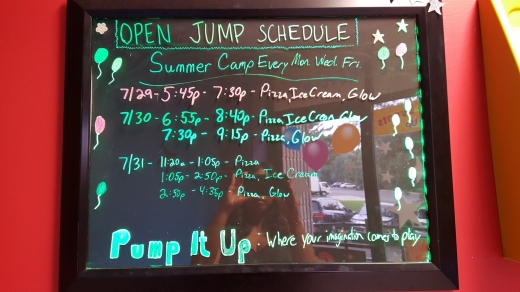 OPEN JUMP SCHEDULE
Summer Camp Every Mon. Wed. Fri.
7/29 - 5:45p - 7:30p - Pizza, Ice Cream, Glow
7/30 - 6:55p - 8:40p - Pizza, Ice Cream, Glow
7:30p - 9:15p - Pizza, Glow
7/31 - 11:20a - 1:05p - Pizza
1:05p - 2:50p - Pizza, Ice Cream
2:50p - 4:35p - Pizza, Glow
Pump It Up : Where your imagination comes to play